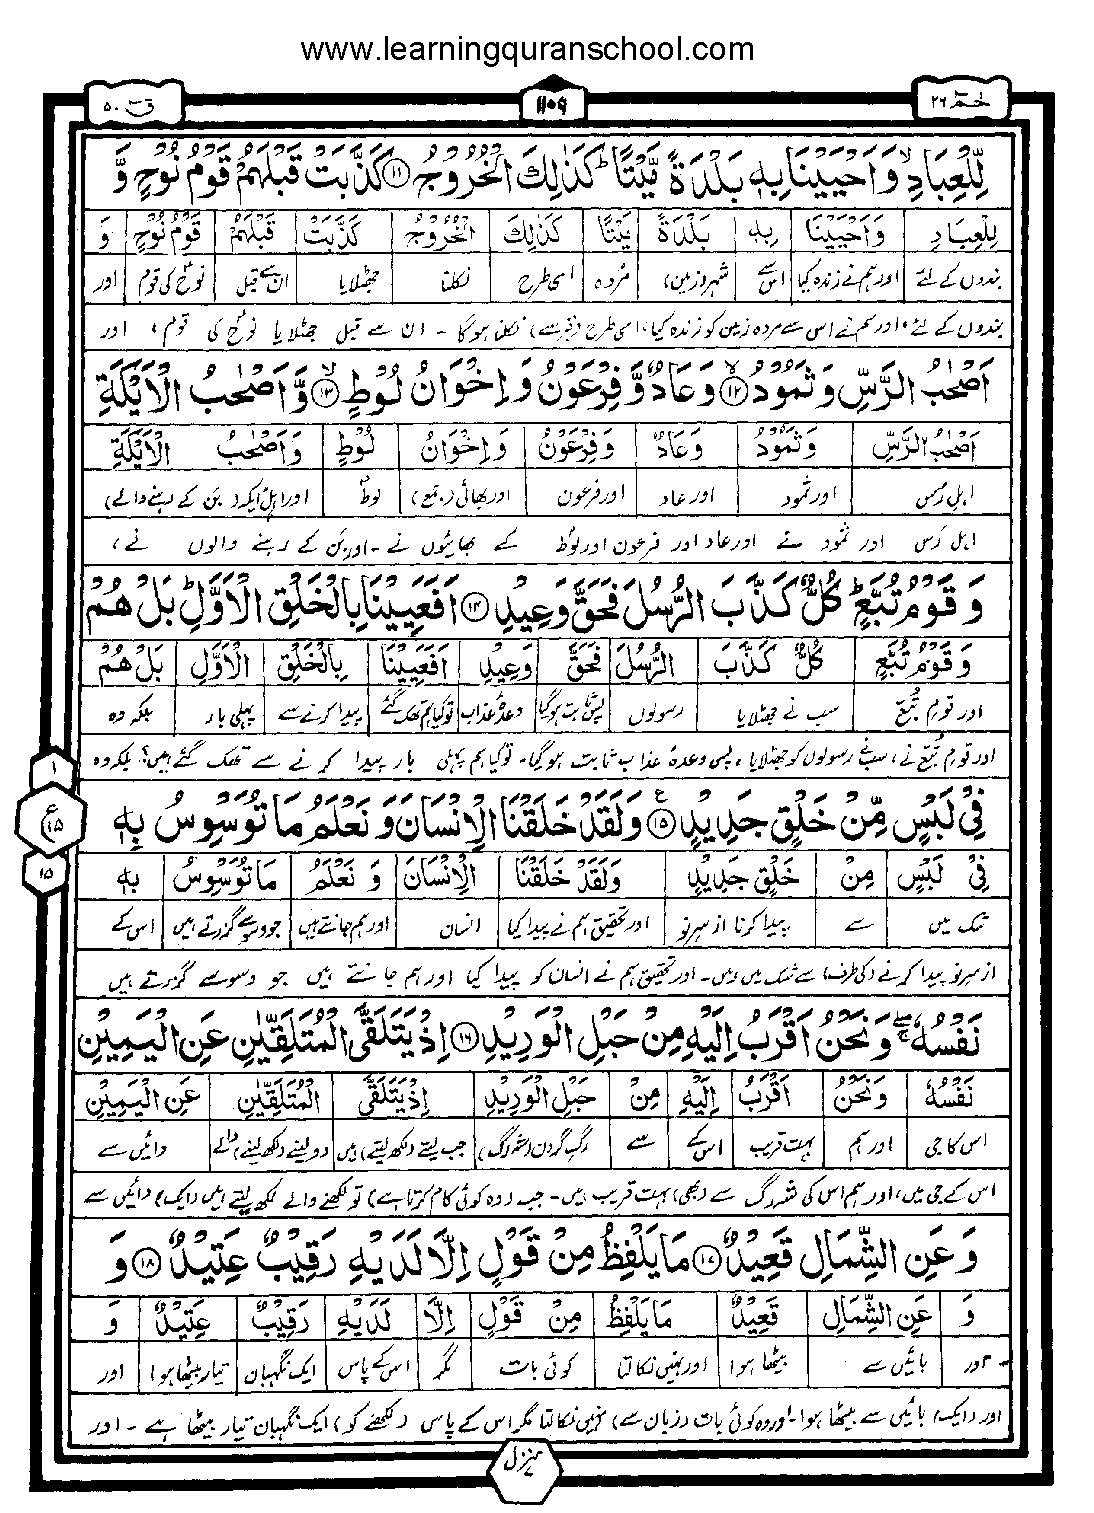 www.learningquranschool.com
حٰمٓ ٢٦
١١٠٩
قٓ ٥٠
لِّلْعِبَادِ ۙ وَاَحْيَيْنَا بِهٖ بَلْدَةً مَّيْتًا ؕ كَذٰلِكَ الْخُرُوْجُ ﴿۱۱﴾ كَذَّبَتْ قَبْلَهُمْ قَوْمُ نُوْحٍ وَّ
لِلْعِبَادِ وَاَحْيَيْنَا بِهٖ بَلْدَةً مَّيْتًا كَذٰلِكَ الْخُرُوْجُ كَذَّبَتْ قَبْلَهُمْ قَوْمُ نُوْحٍ وَ
بندوں کے لئے اور ہم نے زندہ کیا اس سے شہر (زمین) مُردہ اسی طرح نکلنا جھٹلایا ان سے قبل نوحؑ کی قوم اور
بندوں کے لئے، اور ہم نے اس سے مردہ زمین کو زندہ کیا، اسی طرح (قبر سے) نکلنا ہوگا ۔ ان سے قبل جھٹلایا نوحؑ کی قوم، اور
اَصْحٰبُ الرَّسِّ وَثَمُوْدُ ﴿۱۲﴾ۙ وَعَادٌ وَّفِرْعَوْنُ وَاِخْوَانُ لُوْطٍ ﴿۱۳﴾ۙ وَّاَصْحٰبُ الْاَيْكَةِ
اَصْحٰبُ الرَّسِّ وَثَمُوْدُ وَعَادٌ وَفِرْعَوْنُ وَاِخْوَانُ لُوْطٍ وَاَصْحٰبُ الْاَيْكَةِ
اہلِ رَس اور ثمود اور عاد اور فرعون اور بھائی (جمع) لوطؑ اور اہلِ ایکہ (بن کے رہنے والے)
اہل رَس اور ثمود نے اور عاد اور فرعون اور لوطؑ کے بھائیوں نے ۔ اور بن کے رہنے والوں نے،
وَقَوْمُ تُبَّعٍ ؕ كُلٌّ كَذَّبَ الرُّسُلَ فَحَقَّ وَعِيْدِ ﴿۱۴﴾ اَفَعَيِيْنَا بِالْخَلْقِ الْاَوَّلِ ؕ بَلْ هُمْ
وَقَوْمُ تُبَّعٍ كُلٌّ كَذَّبَ الرُّسُلَ فَحَقَّ وَعِيْدِ اَفَعَيِيْنَا بِالْخَلْقِ الْاَوَّلِ بَلْ هُمْ
اور قومِ تُبّع سب نے جھٹلایا رسولوں پس ثابت ہوگیا وعدۂ عذاب تو کیا ہم تھک گئے پیدا کرنے سے پہلی بار بلکہ وہ
اور قومِ تُبّع نے، سب نے رسولوں کو جھٹلایا، پس وعدۂ عذاب ثابت ہوگیا ۔ تو کیا ہم پہلی بار پیدا کرنے سے تھک گئے ہیں؟ بلکہ وہ
١
ع
١٥
١٥
فِيْ لَبْسٍ مِّنْ خَلْقٍ جَدِيْدٍ ﴿۱۵﴾ وَلَقَدْ خَلَقْنَا الْاِنْسَانَ وَنَعْلَمُ مَا تُوَسْوِسُ بِهٖ
فِيْ لَبْسٍ مِنْ خَلْقٍ جَدِيْدٍ وَلَقَدْ خَلَقْنَا الْاِنْسَانَ وَنَعْلَمُ مَا تُوَسْوِسُ بِهٖ
شک میں سے پیدا کرنا از سرِ نو اور تحقیق ہم نے پیدا کیا انسان اور ہم جانتے ہیں جو وسوسے گزرتے ہیں اس کے
از سرِ نو پیدا کرنے (کی طرف) سے شک میں ہیں ۔ اور تحقیق ہم نے انسان کو پیدا کیا اور ہم جانتے ہیں جو وسوسے گزرتے ہیں
نَفْسُهٗ ۖۚ وَنَحْنُ اَقْرَبُ اِلَيْهِ مِنْ حَبْلِ الْوَرِيْدِ ﴿۱۶﴾ اِذْ يَتَلَقَّى الْمُتَلَقِّيٰنِ عَنِ الْيَمِيْنِ
نَفْسُهٗ وَنَحْنُ اَقْرَبُ اِلَيْهِ مِنْ حَبْلِ الْوَرِيْدِ اِذْ يَتَلَقَّى الْمُتَلَقِّيٰنِ عَنِ الْيَمِيْنِ
اس کا جی اور ہم بہت قریب اس کے سے رگِ گردن (شہ رگ) جب لیتے (لکھ لیتے) ہیں دو لینے (لکھ لینے) والے دائیں سے
اس کے جی میں، اور ہم اس کی شہ رگ سے (بھی) بہت قریب ہیں ۔ جب (وہ کوئی کام کرتا ہے) تو لکھنے والے لکھ لیتے ہیں (ایک) دائیں سے
وَعَنِ الشِّمَالِ قَعِيْدٌ ﴿۱۷﴾ مَا يَلْفِظُ مِنْ قَوْلٍ اِلَّا لَدَيْهِ رَقِيْبٌ عَتِيْدٌ ﴿۱۸﴾ وَ
وَ عَنِ الشِّمَالِ قَعِيْدٌ مَا يَلْفِظُ مِنْ قَوْلٍ اِلَّا لَدَيْهِ رَقِيْبٌ عَتِيْدٌ وَ
اور بائیں سے بیٹھا ہوا اور نہیں نکالتا کوئی بات مگر اس کے پاس ایک نگہبان تیار بیٹھا ہوا اور
اور (ایک) بائیں سے بیٹھا ہوا ۔ اور وہ کوئی بات (زبان سے) نہیں نکالتا مگر اس کے پاس (لکھنے کو) ایک نگہبان تیار بیٹھا ہے ۔ اور
منزل